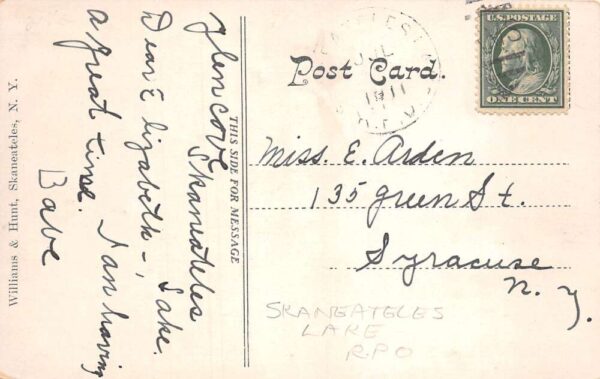 Williams & Hunt, Skaneateles, N. Y.
THIS SIDE FOR MESSAGE
Glencove
Skaneateles
Lake.
Dear Elizabeth -,
I am having
a great time.
Babe
Post Card.
JUL
1911
R.P.O.
U.S. POSTAGE
ONE CENT
Miss. E. Arden
135 Green St.
Syracuse
N. Y.
SKANEATELES
LAKE
RPO